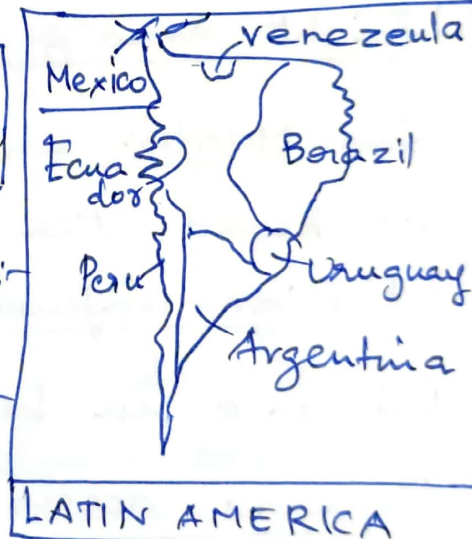 venezeula
Mexico
Ecua
dor
Borazil
Peru
Uruguay
Argentina
LATIN AMERICA